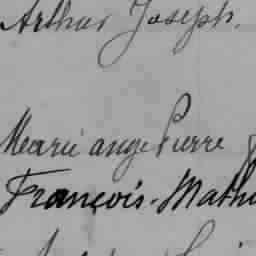 Arthur Joseph.
Marie ange Pierre
François-Mathi